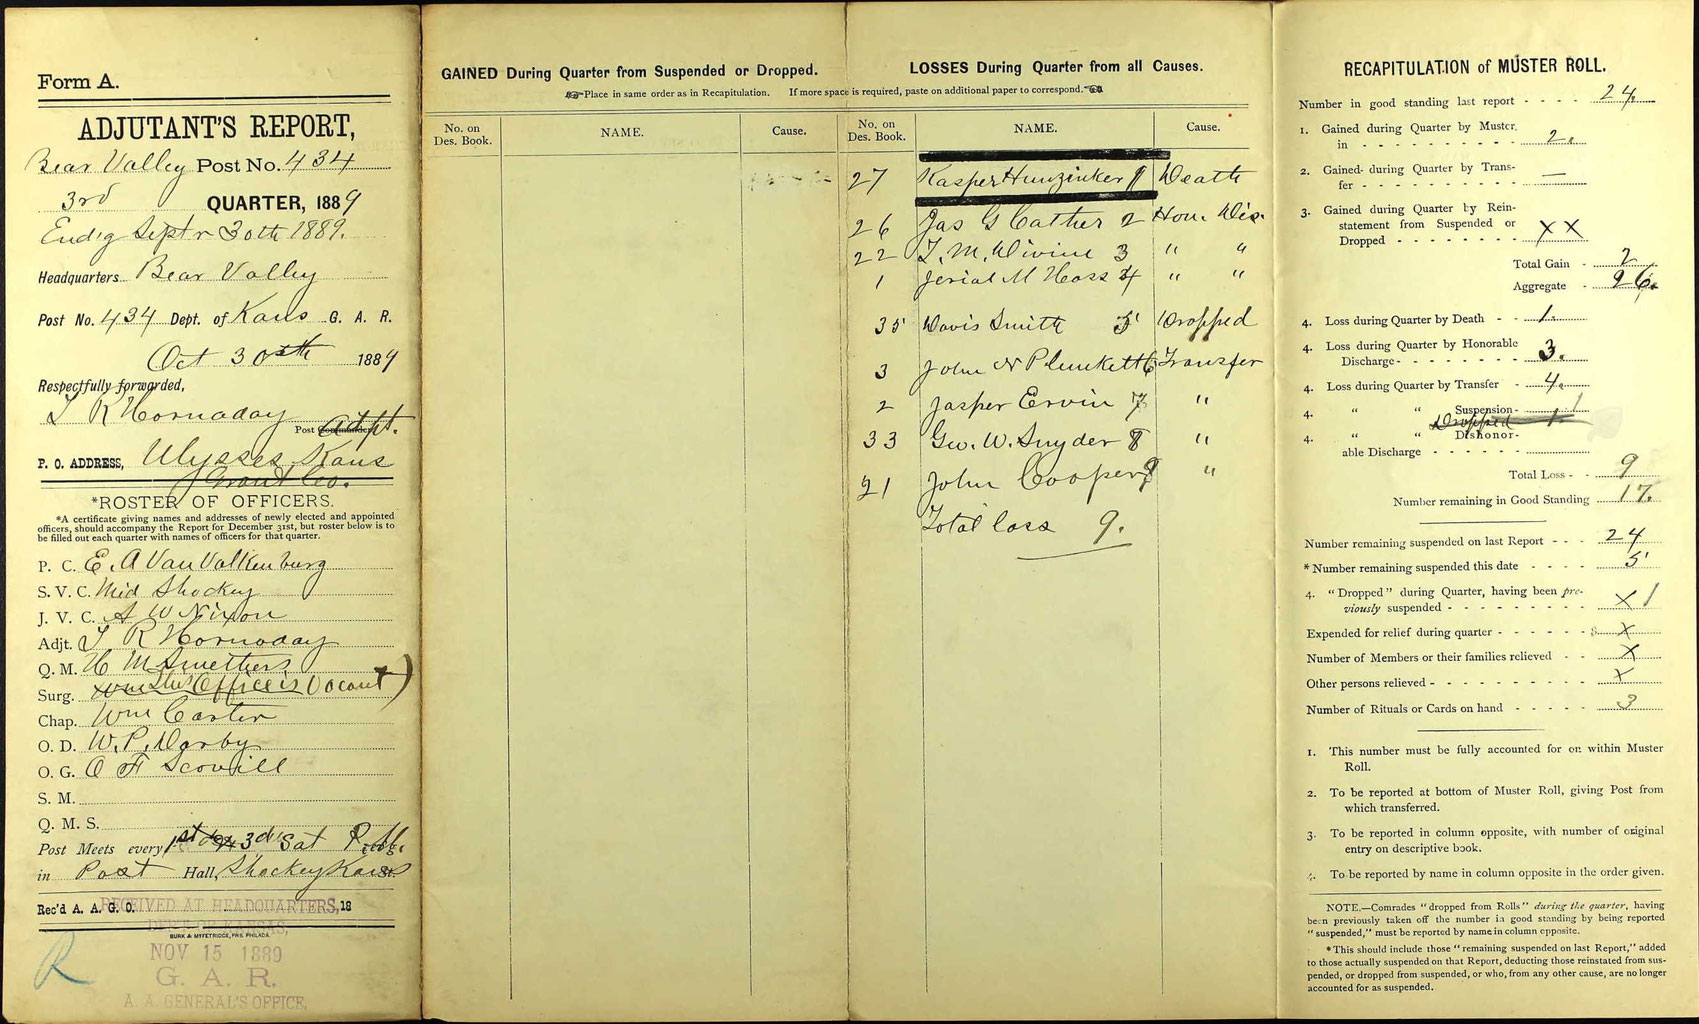 Form A.
ADJUTANT'S REPORT,
Bear Valley Post No. 434
3rd QUARTER, 1889
End'g Septr 30th 1889.
Headquarters Bear Valley
Post No. 434 Dept. of Kans G. A. R.
Oct 30th 1889
Respectfully forwarded,
T R Hornaday
Post Commander Adjt.
P. O. ADDRESS, Ulysses Kans
Grant Co.
*ROSTER OF OFFICERS.
*A certificate giving names and addresses of newly elected and appointed
officers, should accompany the Report for December 31st, but roster below is to
be filled out each quarter with names of officers for that quarter.
P. C. E. A Van Valkenburg
S. V. C. Mid Shockey
J. V. C. A W Nixon
Adjt. T R Hornaday
Q. M. H M Smethers
Surg. This Office is Vacant)
Chap. Wm Carter
O. D. W. P. Darby
O. G. O F Scovill
S. M.
Q. M. S.
Post Meets every 1st & 3d Sat
in Post Hall, Shockey Kans St.
Rec'd A. A. G. O. 18
RECEIVED AT HEADQUARTERS,
BURK & MCFETRIDGE, PRS. PHILADA.
NOV 15 1889
G. A. R.
A. A. GENERAL'S OFFICE.
R
GAINED During Quarter from Suspended or Dropped.
LOSSES During Quarter from all Causes.
Place in same order as in Recapitulation. If more space is required, paste on additional paper to correspond.
No. on Des. Book. NAME. Cause.
No. on Des. Book. NAME. Cause.
27 Kasper Hunzinker 1 Death
26 Jas G Cather 2 Hon. Dis.
22 T. M. Divine 3 " "
1 Jerial M Hoss 4 " "
35 Davis Smith 5 Dropped
3 John N Plunkett 6 Transfer
2 Jasper Ervin 7 "
33 Geo. W. Snyder 8 "
21 John Cooper 9 "
Total loss 9.
RECAPITULATION of MUSTER ROLL.
Number in good standing last report - - - - 24
1. Gained during Quarter by Muster
in - - - - - - - - - - 2.
2. Gained during Quarter by Trans-
fer - - - - - - - - - - —
3. Gained during Quarter by Rein-
statement from Suspended or
Dropped - - - - - - - - X X
Total Gain - 2
Aggregate - 26.
4. Loss during Quarter by Death - - 1.
4. Loss during Quarter by Honorable
Discharge - - - - - - - 3.
4. Loss during Quarter by Transfer - 4.
4. " " Suspension - 1
Dropped 1.
4. " " Dishonor-
able Discharge - - - - - -
Total Loss - - 9
Number remaining in Good Standing 17.
Number remaining suspended on last Report - - - 24
* Number remaining suspended this date - - - - 5
4. "Dropped" during Quarter, having been pre-
viously suspended - - - - - - - - - X 1
Expended for relief during quarter - - - - - - X
Number of Members or their families relieved - - X
Other persons relieved - - - - - - - - - X
Number of Rituals or Cards on hand - - - - - 3
1. This number must be fully accounted for on within Muster
Roll.
2. To be reported at bottom of Muster Roll, giving Post from
which transferred.
3. To be reported in column opposite, with number of original
entry on descriptive book.
4. To be reported by name in column opposite in the order given.
NOTE.—Comrades "dropped from Rolls" during the quarter, having
been previously taken off the number in good standing by being reported
"suspended," must be reported by name in column opposite.
*This should include those "remaining suspended on last Report," added
to those actually suspended on that Report, deducting those reinstated from sus-
pended, or dropped from suspended, or who, from any other cause, are no longer
accounted for as suspended.